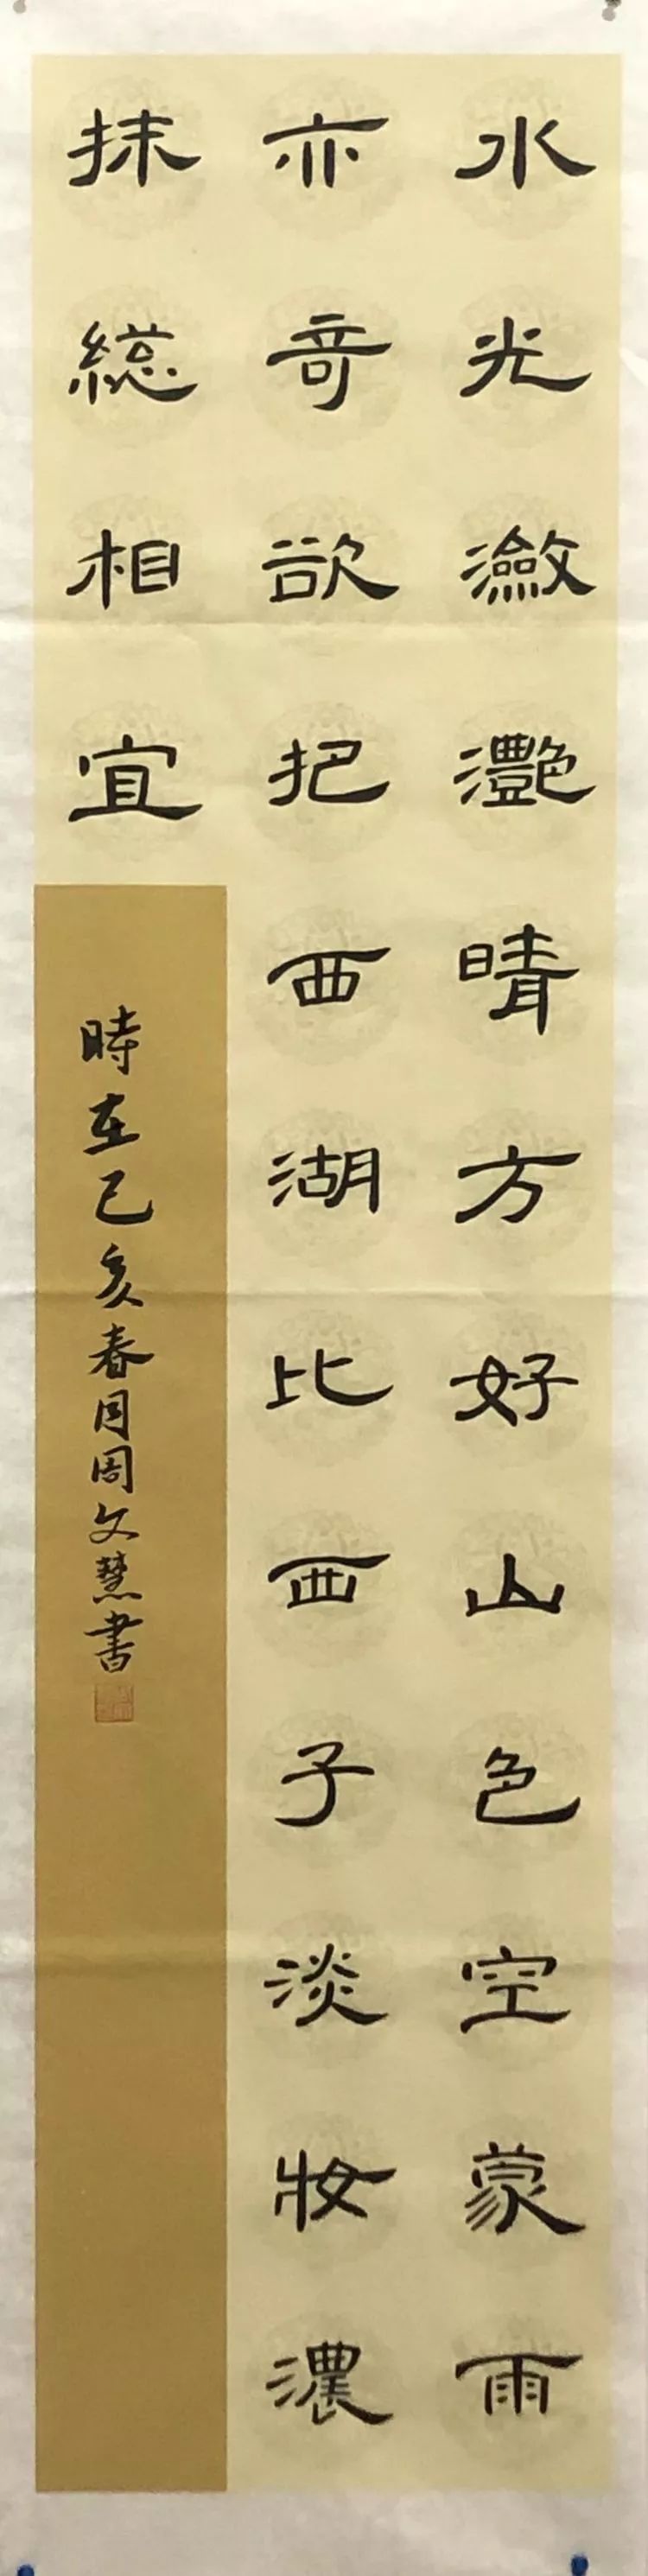 水光瀲灩晴方好山色空蒙雨
亦奇欲把西湖比西子淡妝濃
抹縂相宜
時在己亥春月周文慧書